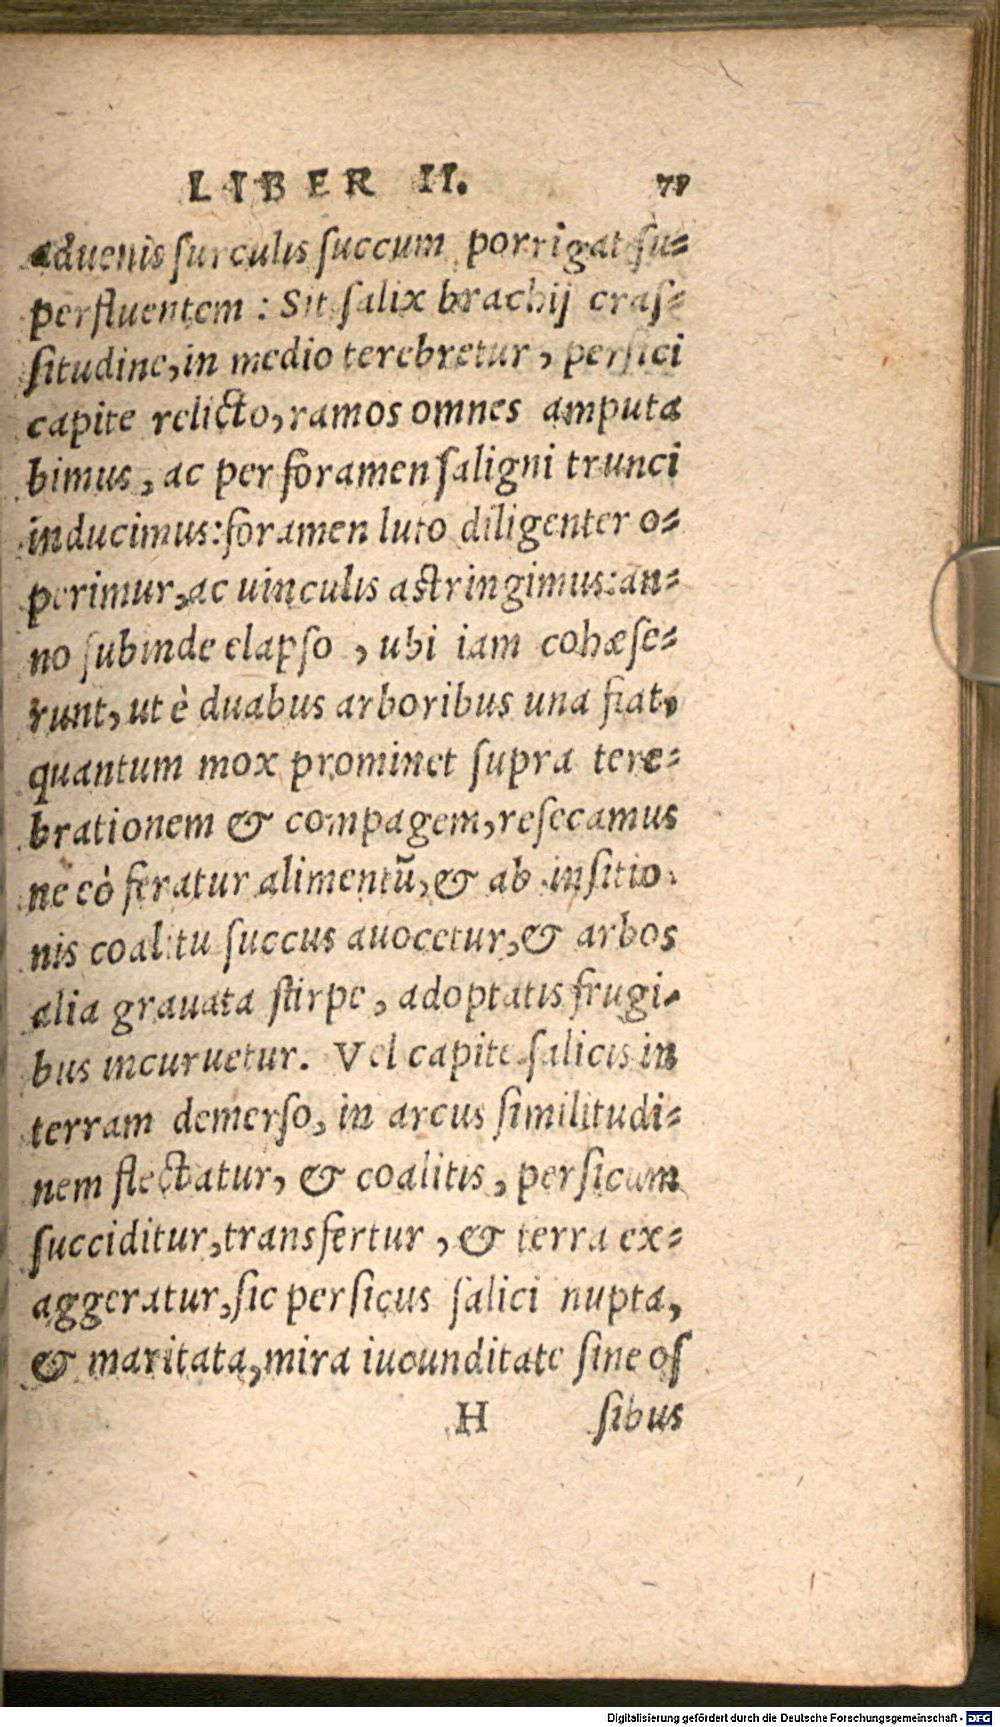 LIBER II. 71
aduenis ſurculis ſuccum porrigat ſu-
perfluentem : Sit ſalix brachij craſ-
ſitudine, in medio terebretur, perſici
capite relicto, ramos omnes amputa
bimus, ac per foramen ſaligni trunci
inducimus: foramen luto diligenter o-
perimur, ac uinculis aſtringimus: an-
no ſubinde elapſo, ubi iam cohæſe-
runt, ut è duabus arboribus una fiat,
quantum mox prominet ſupra tere-
brationem & compagem, reſecamus
ne eò feratur alimentũ, & ab inſitio-
nis coalitu ſuccus auocetur, & arbos
alia grauata ſtirpe, adoptatis frugi-
bus incuruetur. Vel capite ſalicis in
terram demerſo, in arcus ſimilitudi-
nem flectatur, & coalitis, perſicum
ſucciditur, transfertur, & terra ex-
aggeratur, ſic perſicus ſalici nupta,
& maritata, mira iucunditate ſine oſ
H ſibus
Digitalisierung gefördert durch die Deutsche Forschungsgemeinschaft - DFG